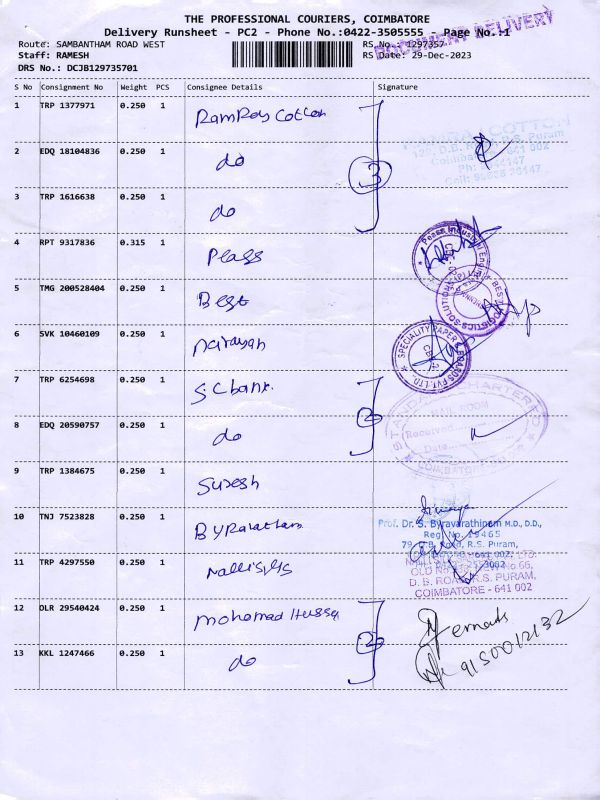 THE PROFESSIONAL COURIERS, COIMBATORE
Delivery Runsheet - PC2 - Phone No.:0422-3505555 - Page No.:1
DOCUMENT DELIVERY
Route: SAMBANTHAM ROAD WEST
RS No.: 1297357
Staff: RAMESH
RS Date: 29-Dec-2023
DRS No.: DCJB129735701
S No Consignment No Weight PCS Consignee Details Signature
1 TRP 1377971 0.250 1 RamRaj Cotton
2 EDQ 18104836 0.250 1 do
3
3 TRP 1616638 0.250 1 do
4 RPT 9317836 0.315 1
5 TMG 200528404 0.250 1 Best
6 SVK 10460109 0.250 1 narayan
SPECIALITY PAPER BOARDS PVT. LTD.
7 TRP 6254698 0.250 1 S.C bank.
2
8 EDQ 20590757 0.250 1 do
STANDARD CHARTERED
ROOM
Received
Date
COIMBATORE
9 TRP 1384675 0.250 1 Suresh
10 TNJ 7523828 0.250 1
Prof. Dr. S. Byravarathinam M.D., D.D.,
Reg. No. 19465
79, D.B. Road, R.S. Puram,
11 TRP 4297550 0.250 1
D. B. ROAD, R.S. PURAM,
COIMBATORE - 641 002
12 DLR 29540424 0.250 1 mohamad Hussa
2
13 KKL 1247466 0.250 1 do
9150012132